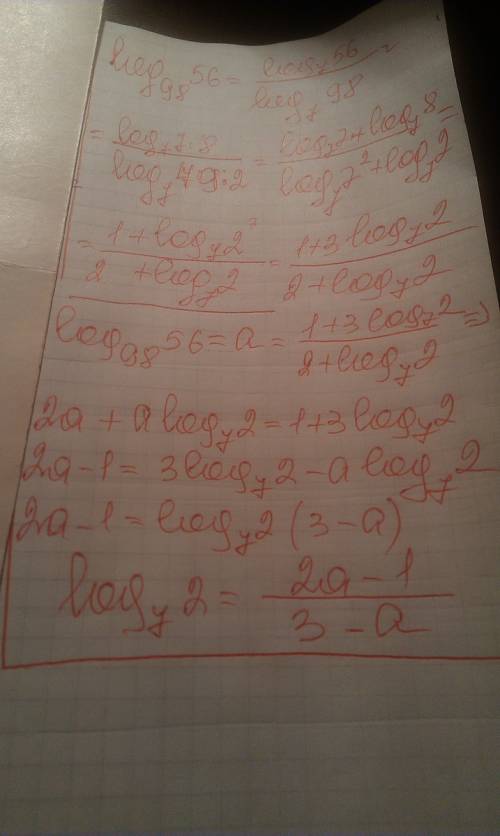 log₉₈ 56 = log₇ 56 / log₇ 98 =
= log₇ 7·8 / log₇ 49·2 = (log₇ 7 + log₇ 8) / (log₇ 7² + log₇ 2) =
= (1 + log₇ 2³) / (2 + log₇ 2) = (1+3 log₇ 2) / (2 + log₇ 2)
log₉₈ 56 = a = (1+3 log₇ 2) / (2 + log₇ 2) ⇒
2a + a log₇ 2 = 1+3 log₇ 2
2a - 1 = 3 log₇ 2 - a log₇ 2
2a - 1 = log₇ 2 (3 - a)
log₇ 2 = (2a - 1) / (3 - a)